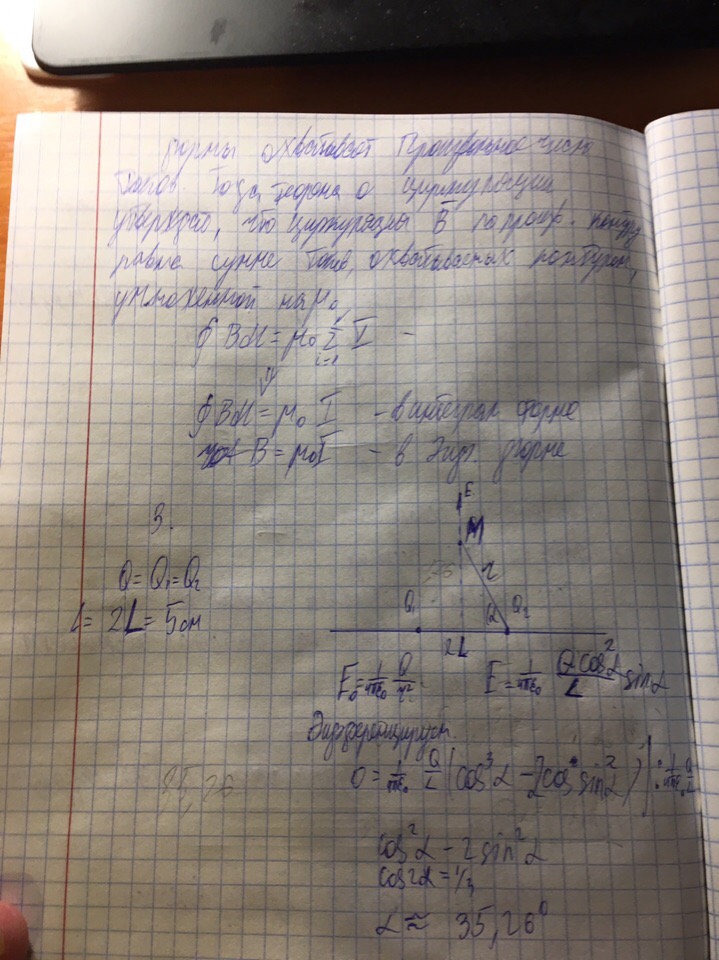 охватывает Произвольное число
токов. Тогда теорема о циркуляции
утверждает, что циркуляция B̅ по произв. контуру
равна сумме токов, охватываемых контуром,
умноженной на μ₀
∮ Bdl = μ₀ Σ I -
i=1
∮ Bdl = μ₀ I - в интеграл форме
B = μ₀I - в диф. форме
3.
E
M
Q = Q₁ = Q₂
r
l = 2L = 5 см
Q₁ α Q₂
2L
E₀ = 1/4πε₀ Q/r² E = 1/4πε₀ Q cos²α/L sinα
Дифференцируем.
0 = 1/4πε₀ Q/L (cos³α - 2cosα sin²α) | : 1/4πε₀ Q/L
35,26
cos²α - 2sin²α
cos2α = 1/3
α ≈ 35,26°